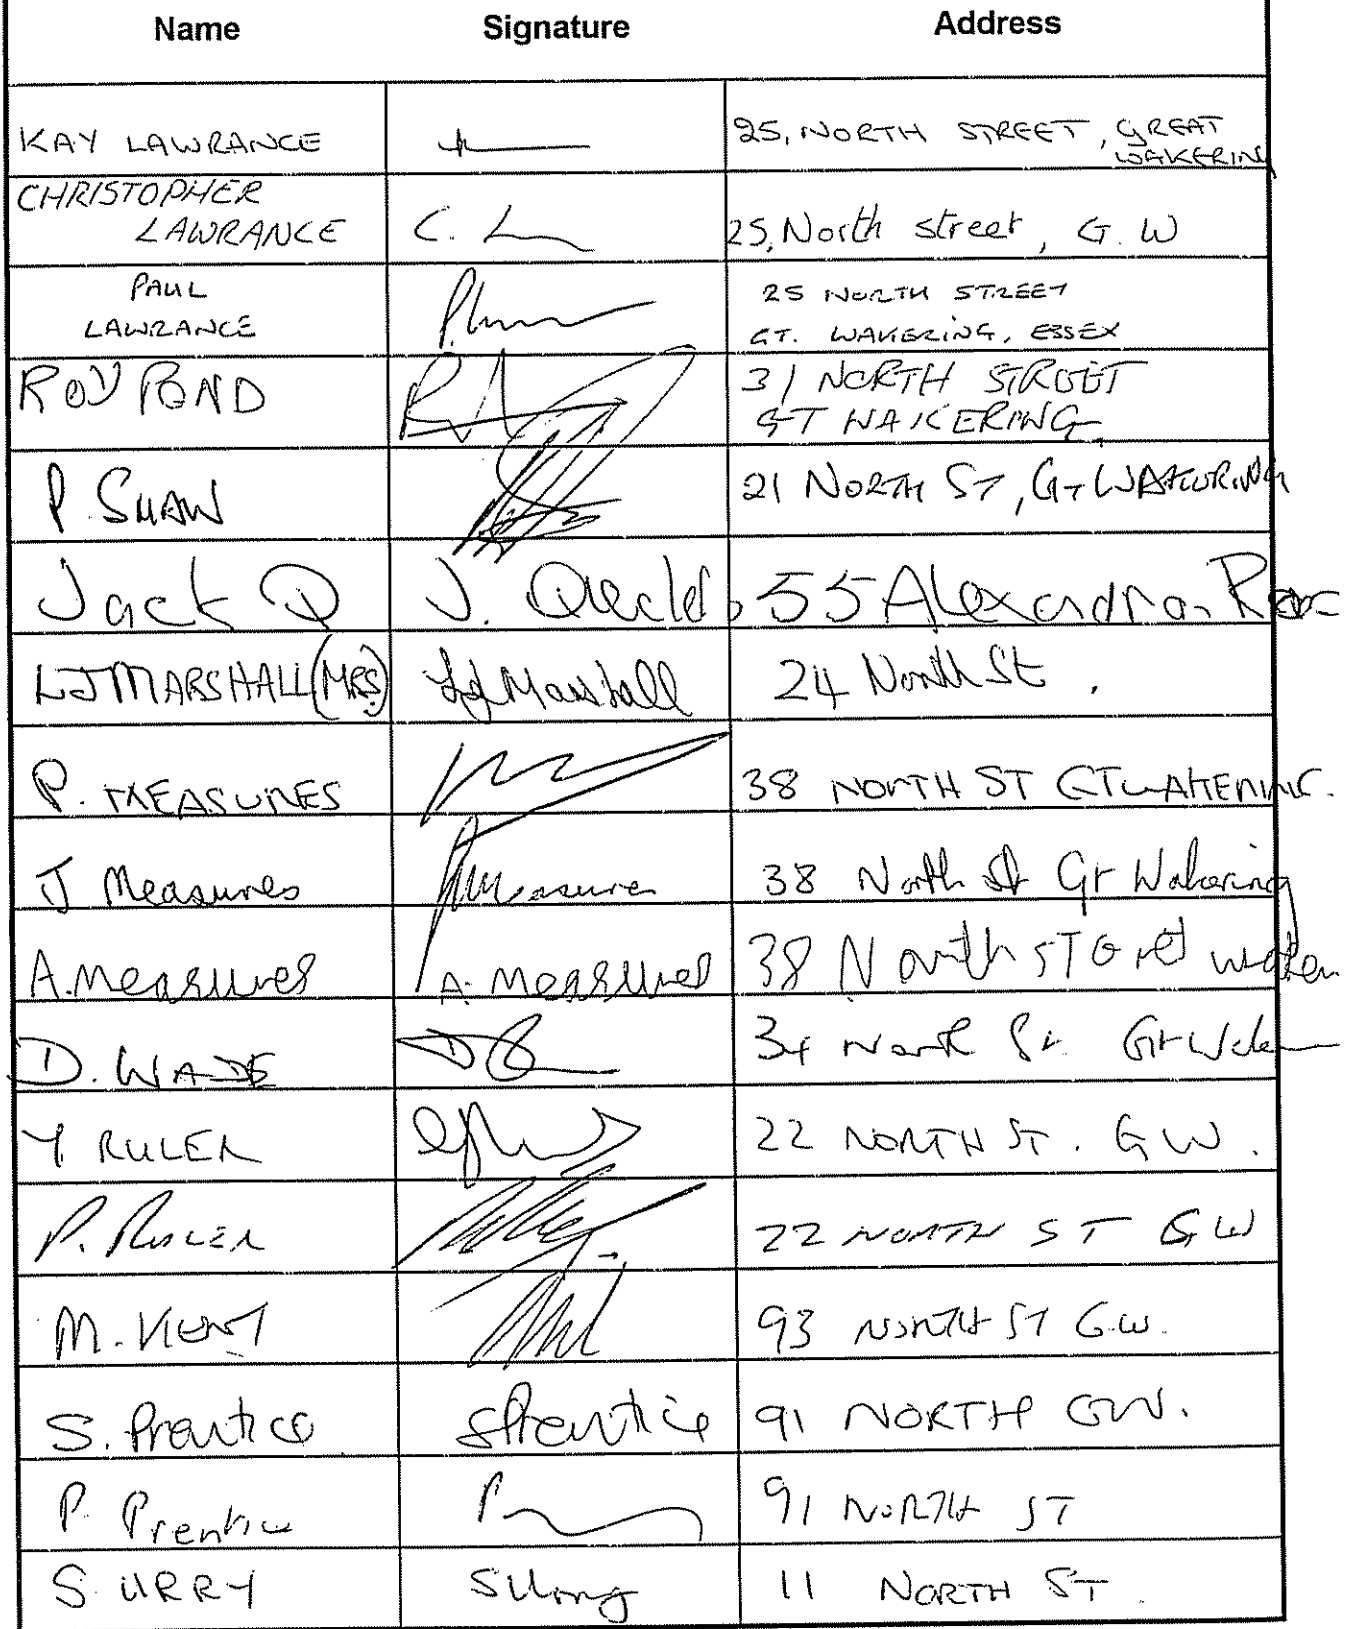 Name Signature Address
KAY LAWRANCE 25, NORTH STREET, GREAT
WAKERING
CHRISTOPHER
LAWRANCE C. L 25, North street, G. W
PAUL 25 NORTH STREET
LAWRANCE GT. WAKERING, ESSEX
ROY POND 31 NORTH STREET
GT WAKERING
P. SHAW 21 NORTH ST, GT WAKERING
Jack Q J. 55 Alexandra Road
L J MARSHALL (MRS) L J Marshall 24 North St.
P. MEASURES 38 NORTH ST GT WAKERING.
J Measures Measures 38 North St Gt Wakering
A. Measures A. Measures 38 North ST
D. WADE 34 North St. Gt
Y RULER 22 NORTH ST. G W.
P. RULER 22 NORTH ST GW
M. KENT 93 NORTH ST G.W.
S. Prentice S Prentice 91 NORTH GW.
P. Prentice 91 NORTH ST
S. URRY S Urry 11 NORTH ST.